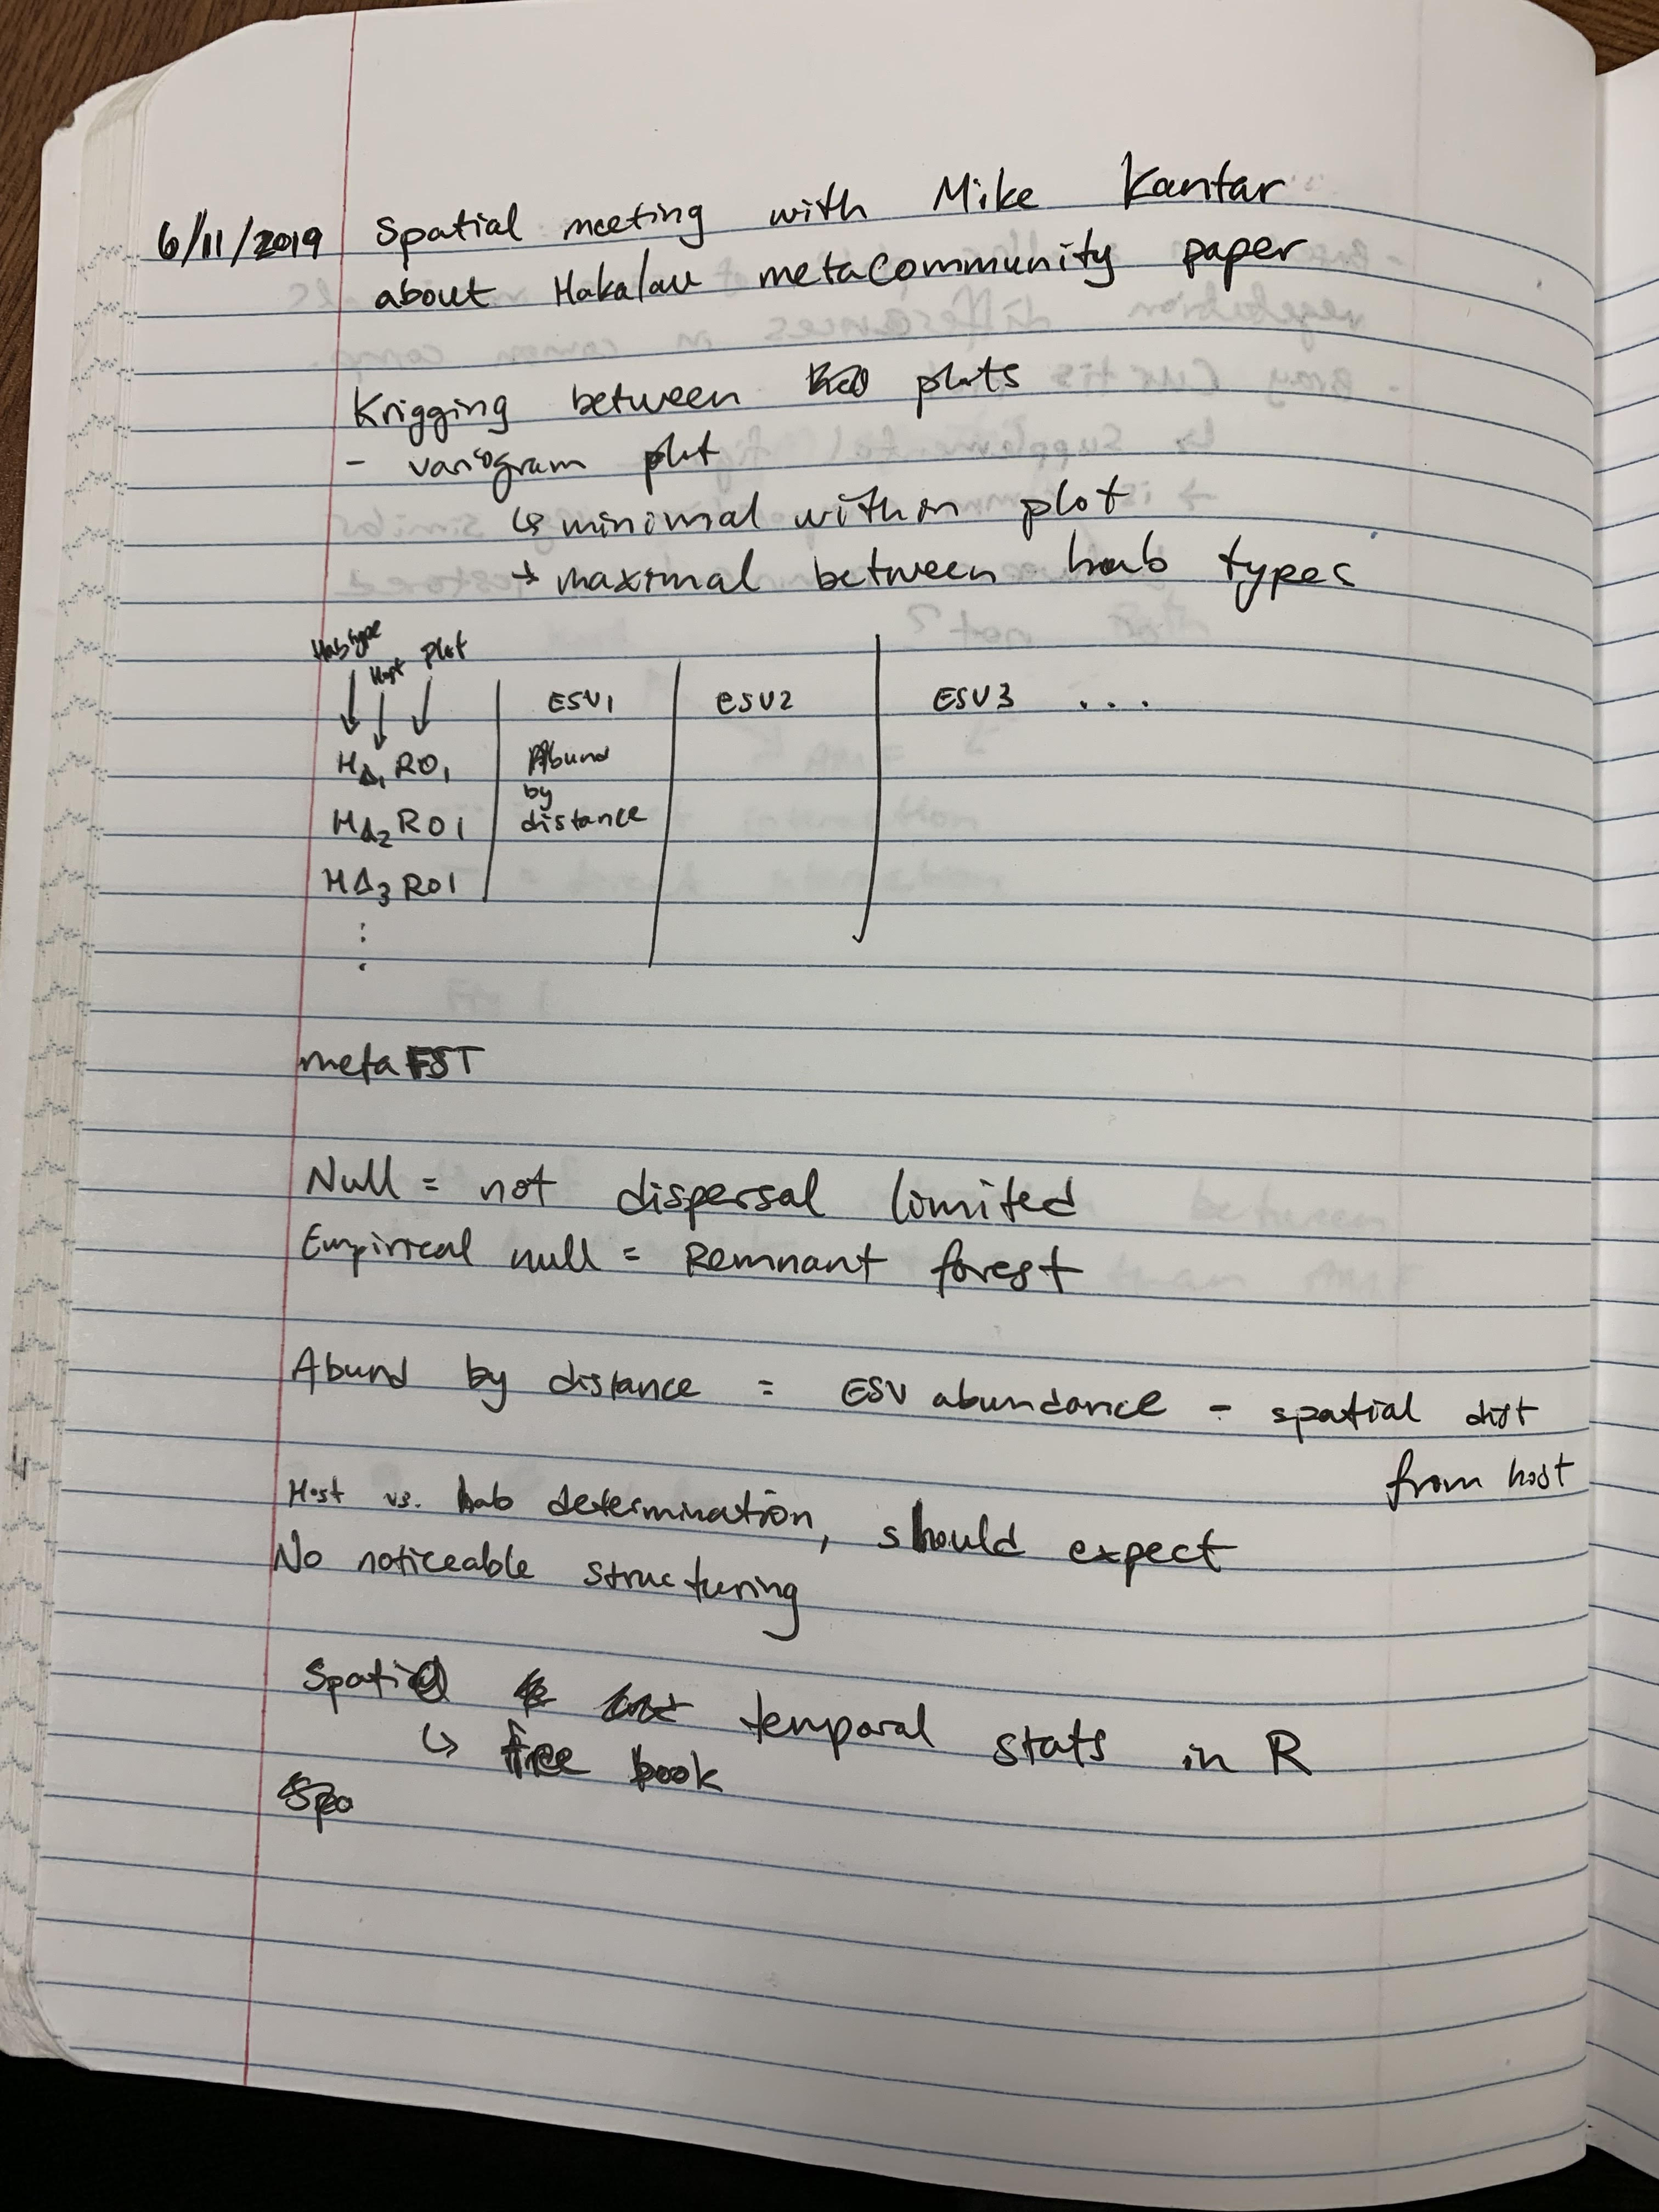 6/11/2019 Spatial meeting with Mike Kantar
about Hakalau metacommunity paper
Krigging between plots
- variogram plot
↳ minimal within plot
→ maximal between hab types
Hab type Host plot
ESV1 ESV2 ESV3 ...
HΔ1 RO1 Abund
by
HΔ2 RO1 distance
HΔ3 RO1
:
.
meta FST
Null = not dispersal limited
Empirical null = Remnant forest
Abund by distance = ESV abundance - spatial dist
from host
Host vs. hab determination, should expect
No noticeable structuring
Spatial temporal stats in R
↳ free book
Spa